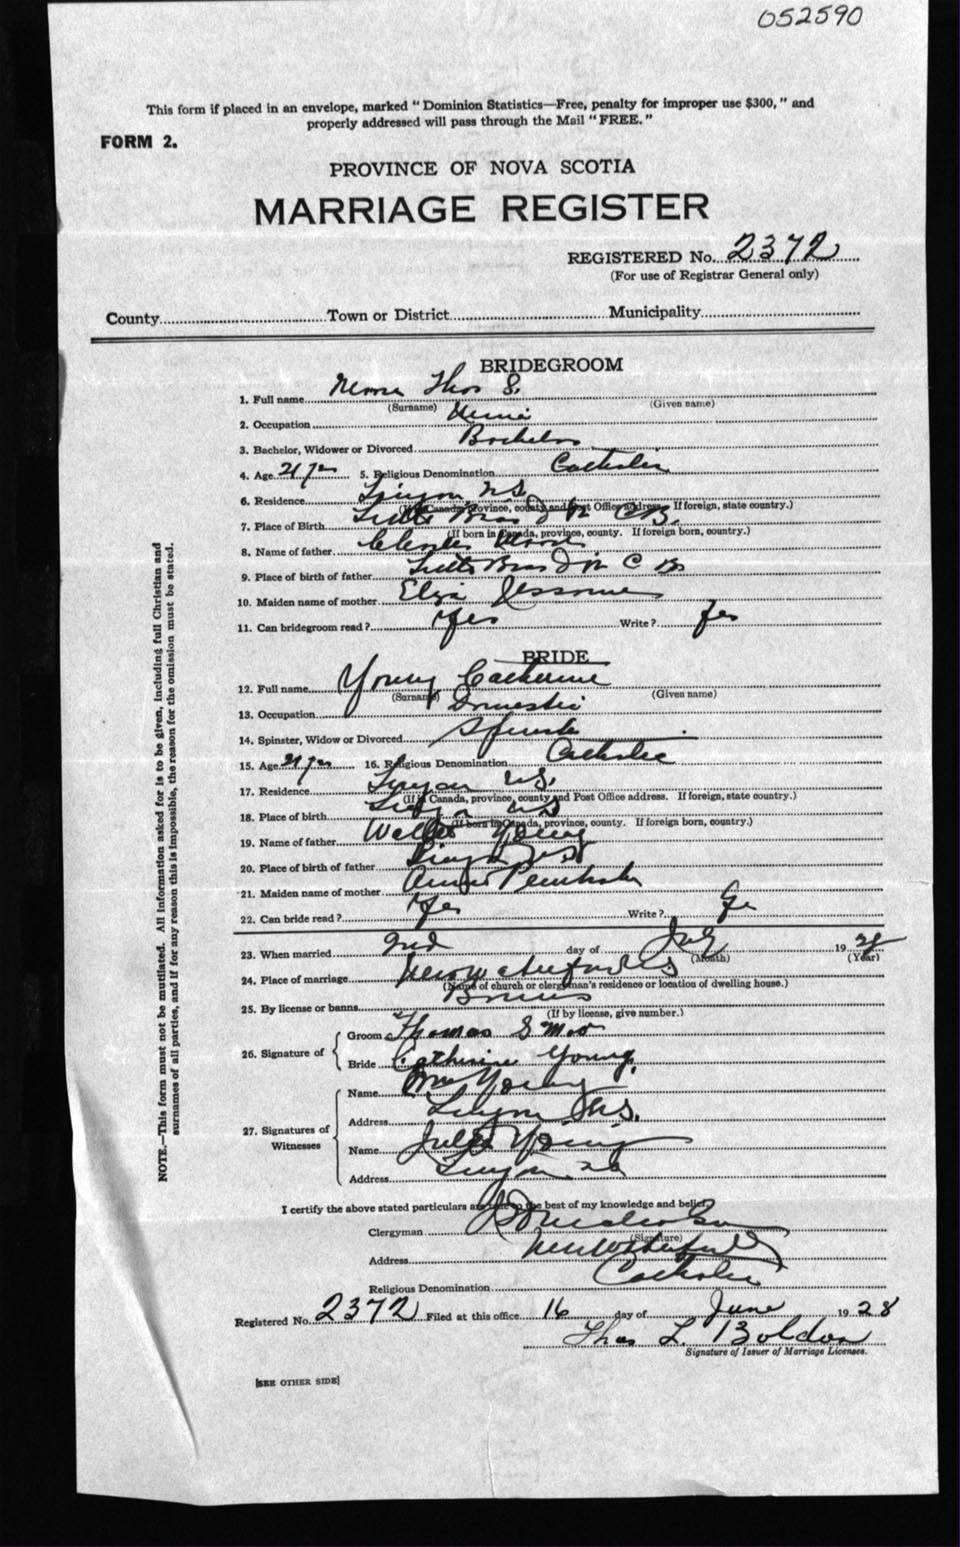 052590
This form if placed in an envelope, marked "Dominion Statistics—Free, penalty for improper use $300," and
properly addressed will pass through the Mail "FREE."
FORM 2.
PROVINCE OF NOVA SCOTIA
MARRIAGE REGISTER
REGISTERED No. 2372
(For use of Registrar General only)
County Town or District Municipality
BRIDEGROOM
1. Full name Thos S.
(Surname) (Given name)
2. Occupation
3. Bachelor, Widower or Divorced Bachelor
4. Age 21 yrs 5. Religious Denomination Catholic
6. Residence N.S.
(If in Canada, province, county and Post Office address. If foreign, state country.)
7. Place of Birth Little Bras D'or C.B.
(If born in Canada, province, county. If foreign born, country.)
8. Name of father Charles
9. Place of birth of father Little Bras D'or C B
10. Maiden name of mother Eliza
11. Can bridegroom read? Yes Write? Yes
BRIDE
12. Full name Young Catherine
(Surname) (Given name)
13. Occupation Domestic
14. Spinster, Widow or Divorced
15. Age 21 yrs 16. Religious Denomination Catholic
17. Residence N.S.
(If in Canada, province, county and Post Office address. If foreign, state country.)
18. Place of birth N S
(If born in Canada, province, county. If foreign born, country.)
19. Name of father Young
20. Place of birth of father
21. Maiden name of mother
22. Can bride read? Yes Write? Ye
23. When married 2nd day of 19 28
(Month) (Year)
24. Place of marriage New Waterford N S
(Name of church or clergyman's residence or location of dwelling house.)
25. By license or banns
(If by license, give number.)
26. Signature of
Groom Thomas S
Bride Catherine Young.
27. Signatures of Witnesses
Name Young
Address N.S.
Name Young
Address
I certify the above stated particulars are true to the best of my knowledge and belief.
Clergyman
(Signature)
Address New Waterford
Religious Denomination Catholic
Registered No. 2372 Filed at this office 16 day of June 19 28
Thos L.
Signature of Issuer of Marriage Licenses.
[SEE OTHER SIDE]
NOTE.—This form must not be mutilated. All information asked for is to be given, including full Christian and
surnames of all parties, and if for any reason this is impossible, the reason for the omission must be stated.